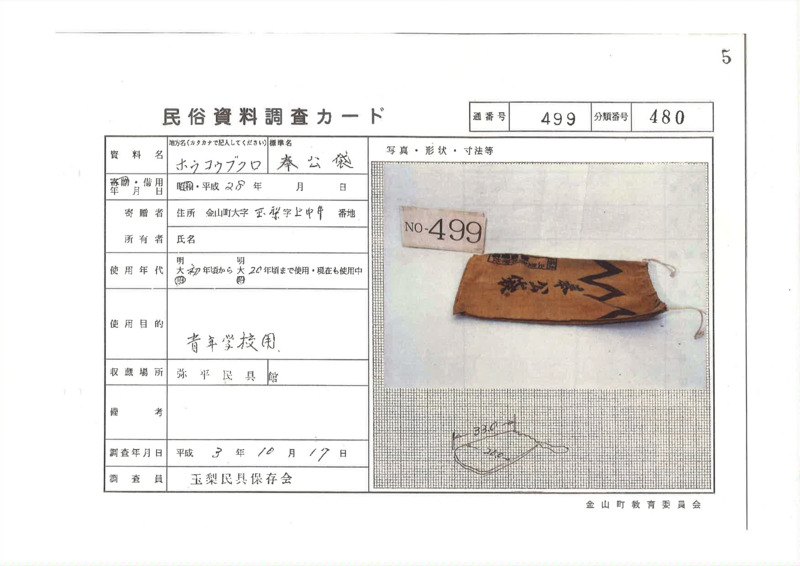 5
民俗資料調査カード
通番号 499 分類番号 480
資料名 地方名(カタカナで記入してください) 標準名
ホウコウブクロ 奉公袋
写真・形状・寸法等
寄贈・借用 年月日 昭和・平成 28年 月 日
寄贈者 住所 金山町大字玉梨字上中井 番地
所有者 氏名
使用年代 明 大 昭 初年頃から 明 大 昭 20年頃まで使用・現在も使用中
使用目的 青年学校用
収蔵場所 弥平民具館
備考
調査年月日 平成 3年 10月 17日
調査員 玉梨民具保存会
NO-499
奉公袋
33.0
20.0
金山町教育委員会